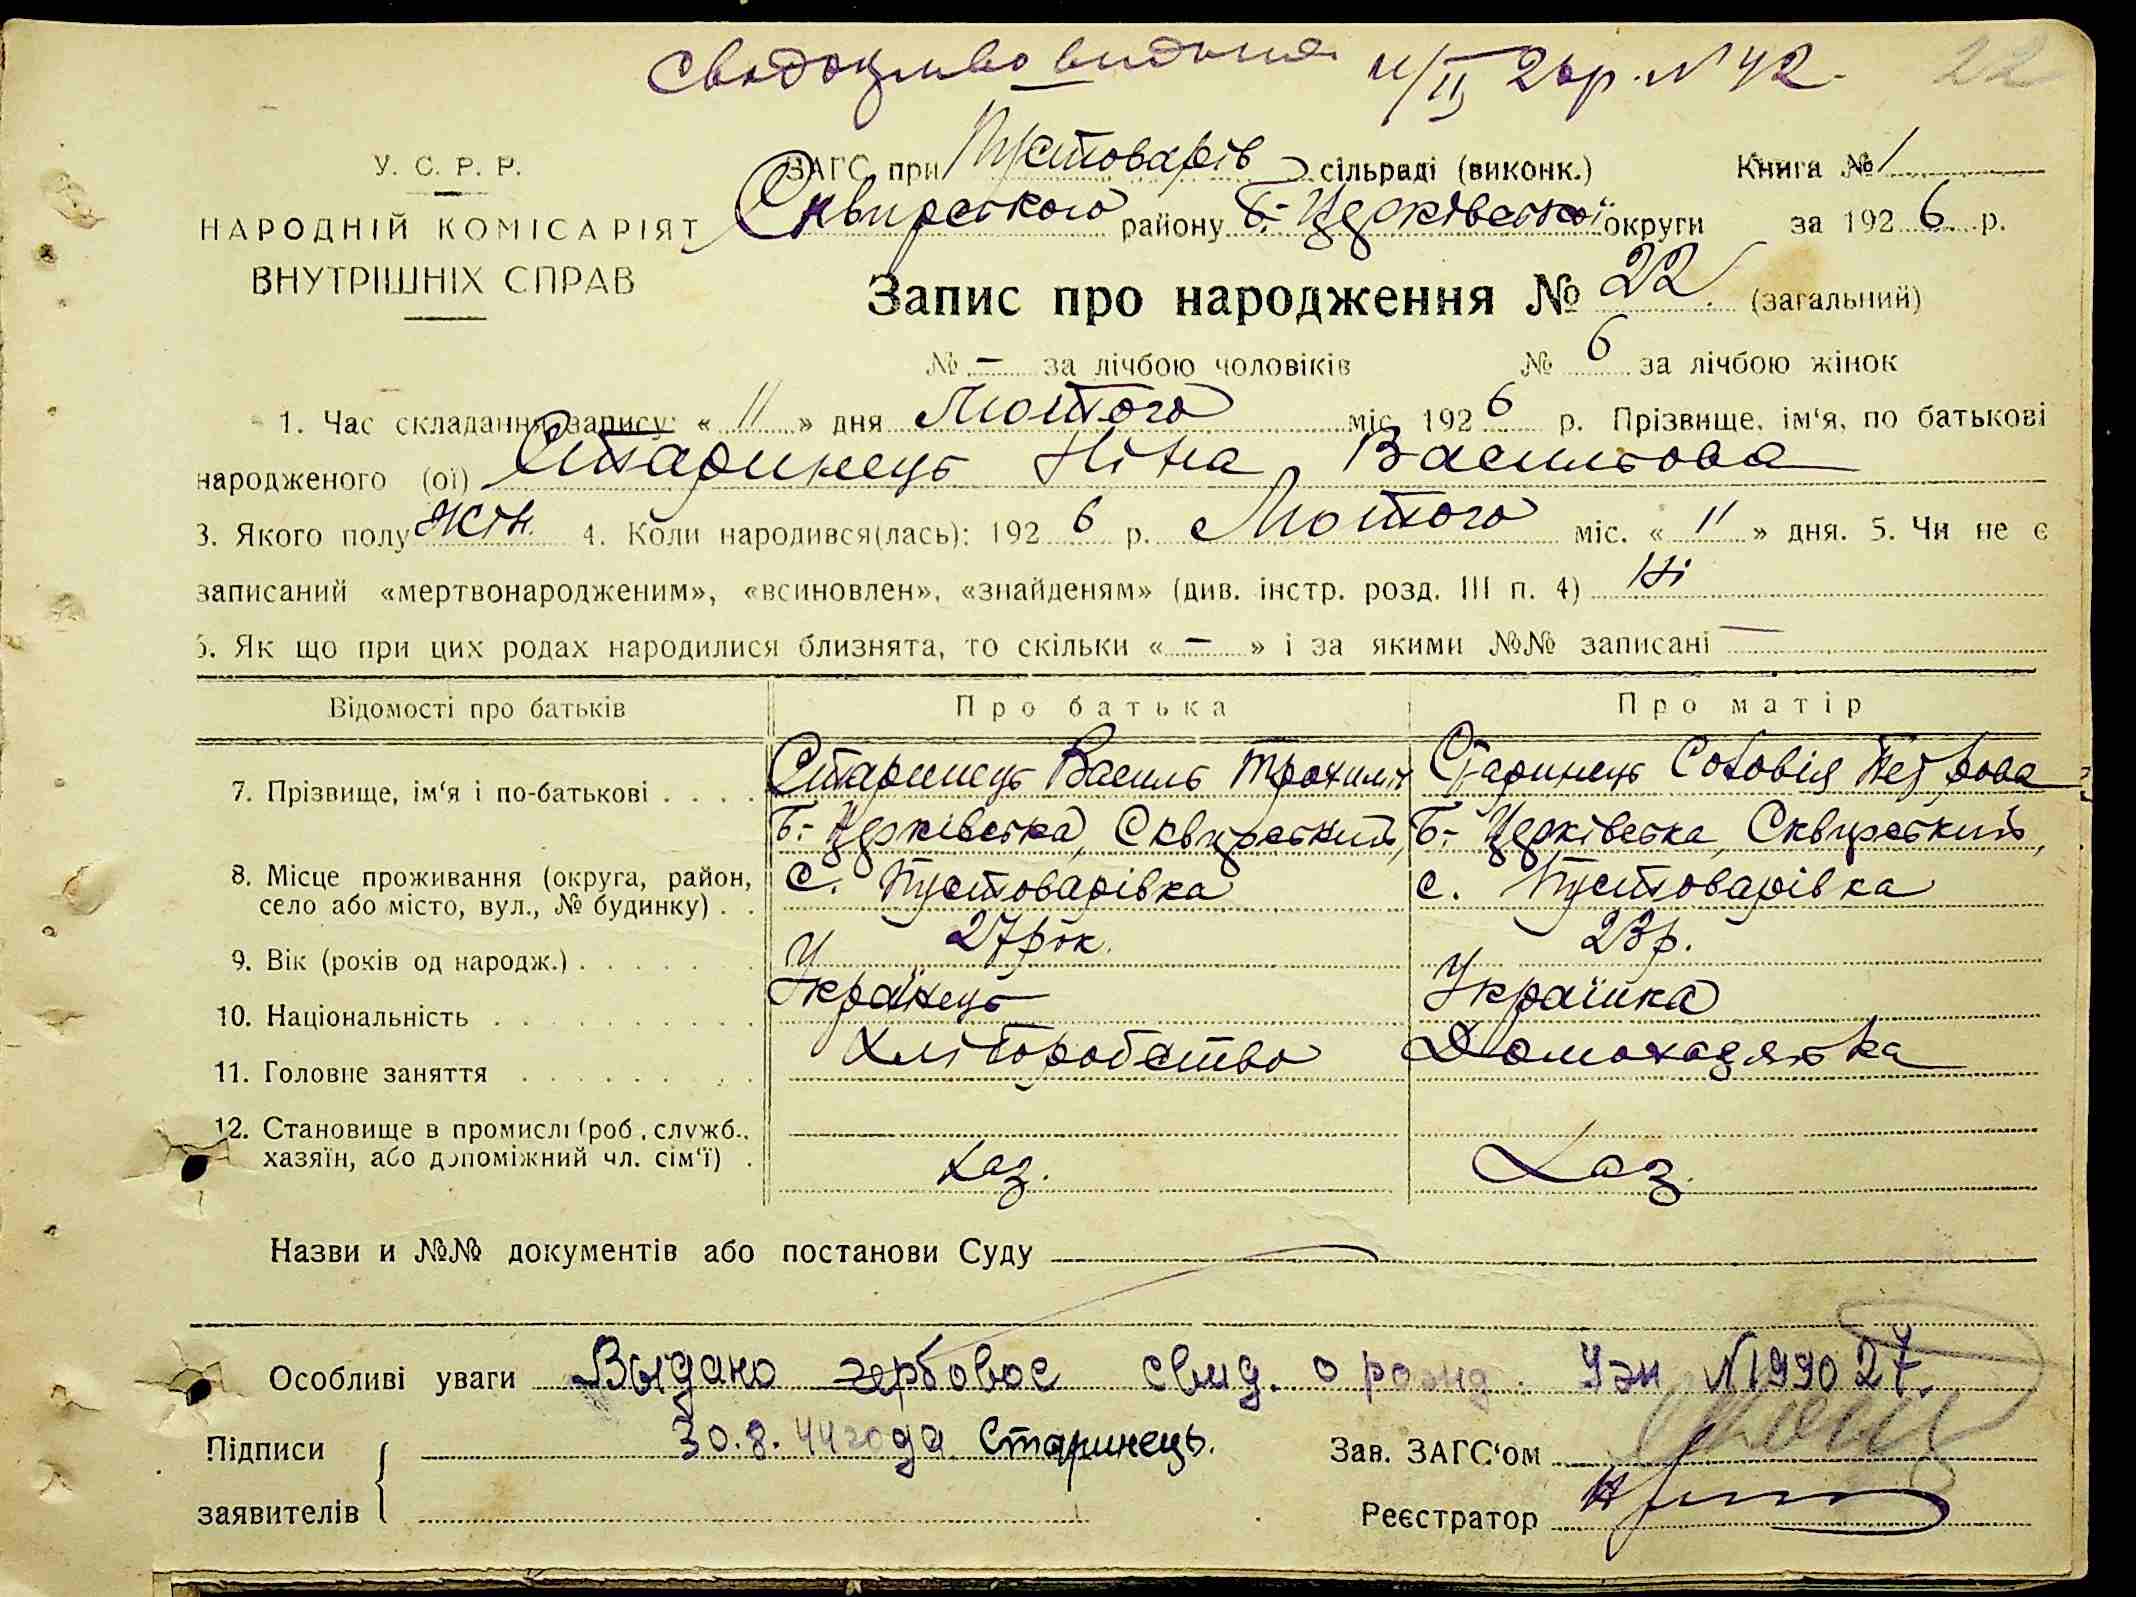 Свидоцтво видано 11/II 26р. № 42. 22
У. С. Р. Р.
НАРОДНІЙ КОМІСАРІЯТ
ВНУТРІШНІХ СПРАВ
ЗАГС при Пустоварів сільраді (виконк.) Книга № 1
Сквирського району Б.-Церківської округи за 1926 р.
Запис про народження № 22 (загальний)
№ – за лічбою чоловіків № 6 за лічбою жінок
1. Час складання запису: « 11 » дня Лютого міс. 1926 р. Прізвище, ім‘я, по батькові
народженого (ої) Старинець Ніна Васильова
3. Якого полу жін. 4. Коли народився(лась): 1926 р. Лютого міс. « 11 » дня. 5. Чи не є
записаний «мертвонародженим», «всиновлен», «знайденям» (див. інстр. розд. III п. 4) Ні
6. Як що при цих родах народилися близнята, то скільки « – » і за якими №№ записані —
Відомості про батьків Про батька Про матір
7. Прізвище, ім‘я і по-батькові . . . . Старинець Василь Трохимів Старинець Соловія Петрова
Б.- Церківська, Сквирський, Б.- Церківська, Сквирський,
8. Місце проживання (округа, район,
село або місто, вул., № будинку) . . с. Пустоварівка с. Пустоварівка
9. Вік (років од народж.) . . . . . . . 27 рок. 23 р.
10. Національність . . . . . . . . . . Українець Українка
11. Головне заняття . . . . . . . . . Хліборобство Домохазяйка
12. Становище в промислі (роб., служб.,
хазяїн, або допоміжний чл. сім‘ї) . Хаз. Хаз.
Назви и №№ документів або постанови Суду
Особливі уваги Выдано гербовое свид. о рожд. Уэн №199027.
Підписи 30.8.44 года Старинець. Зав. ЗАГС‘ом
заявителів Реєстратор